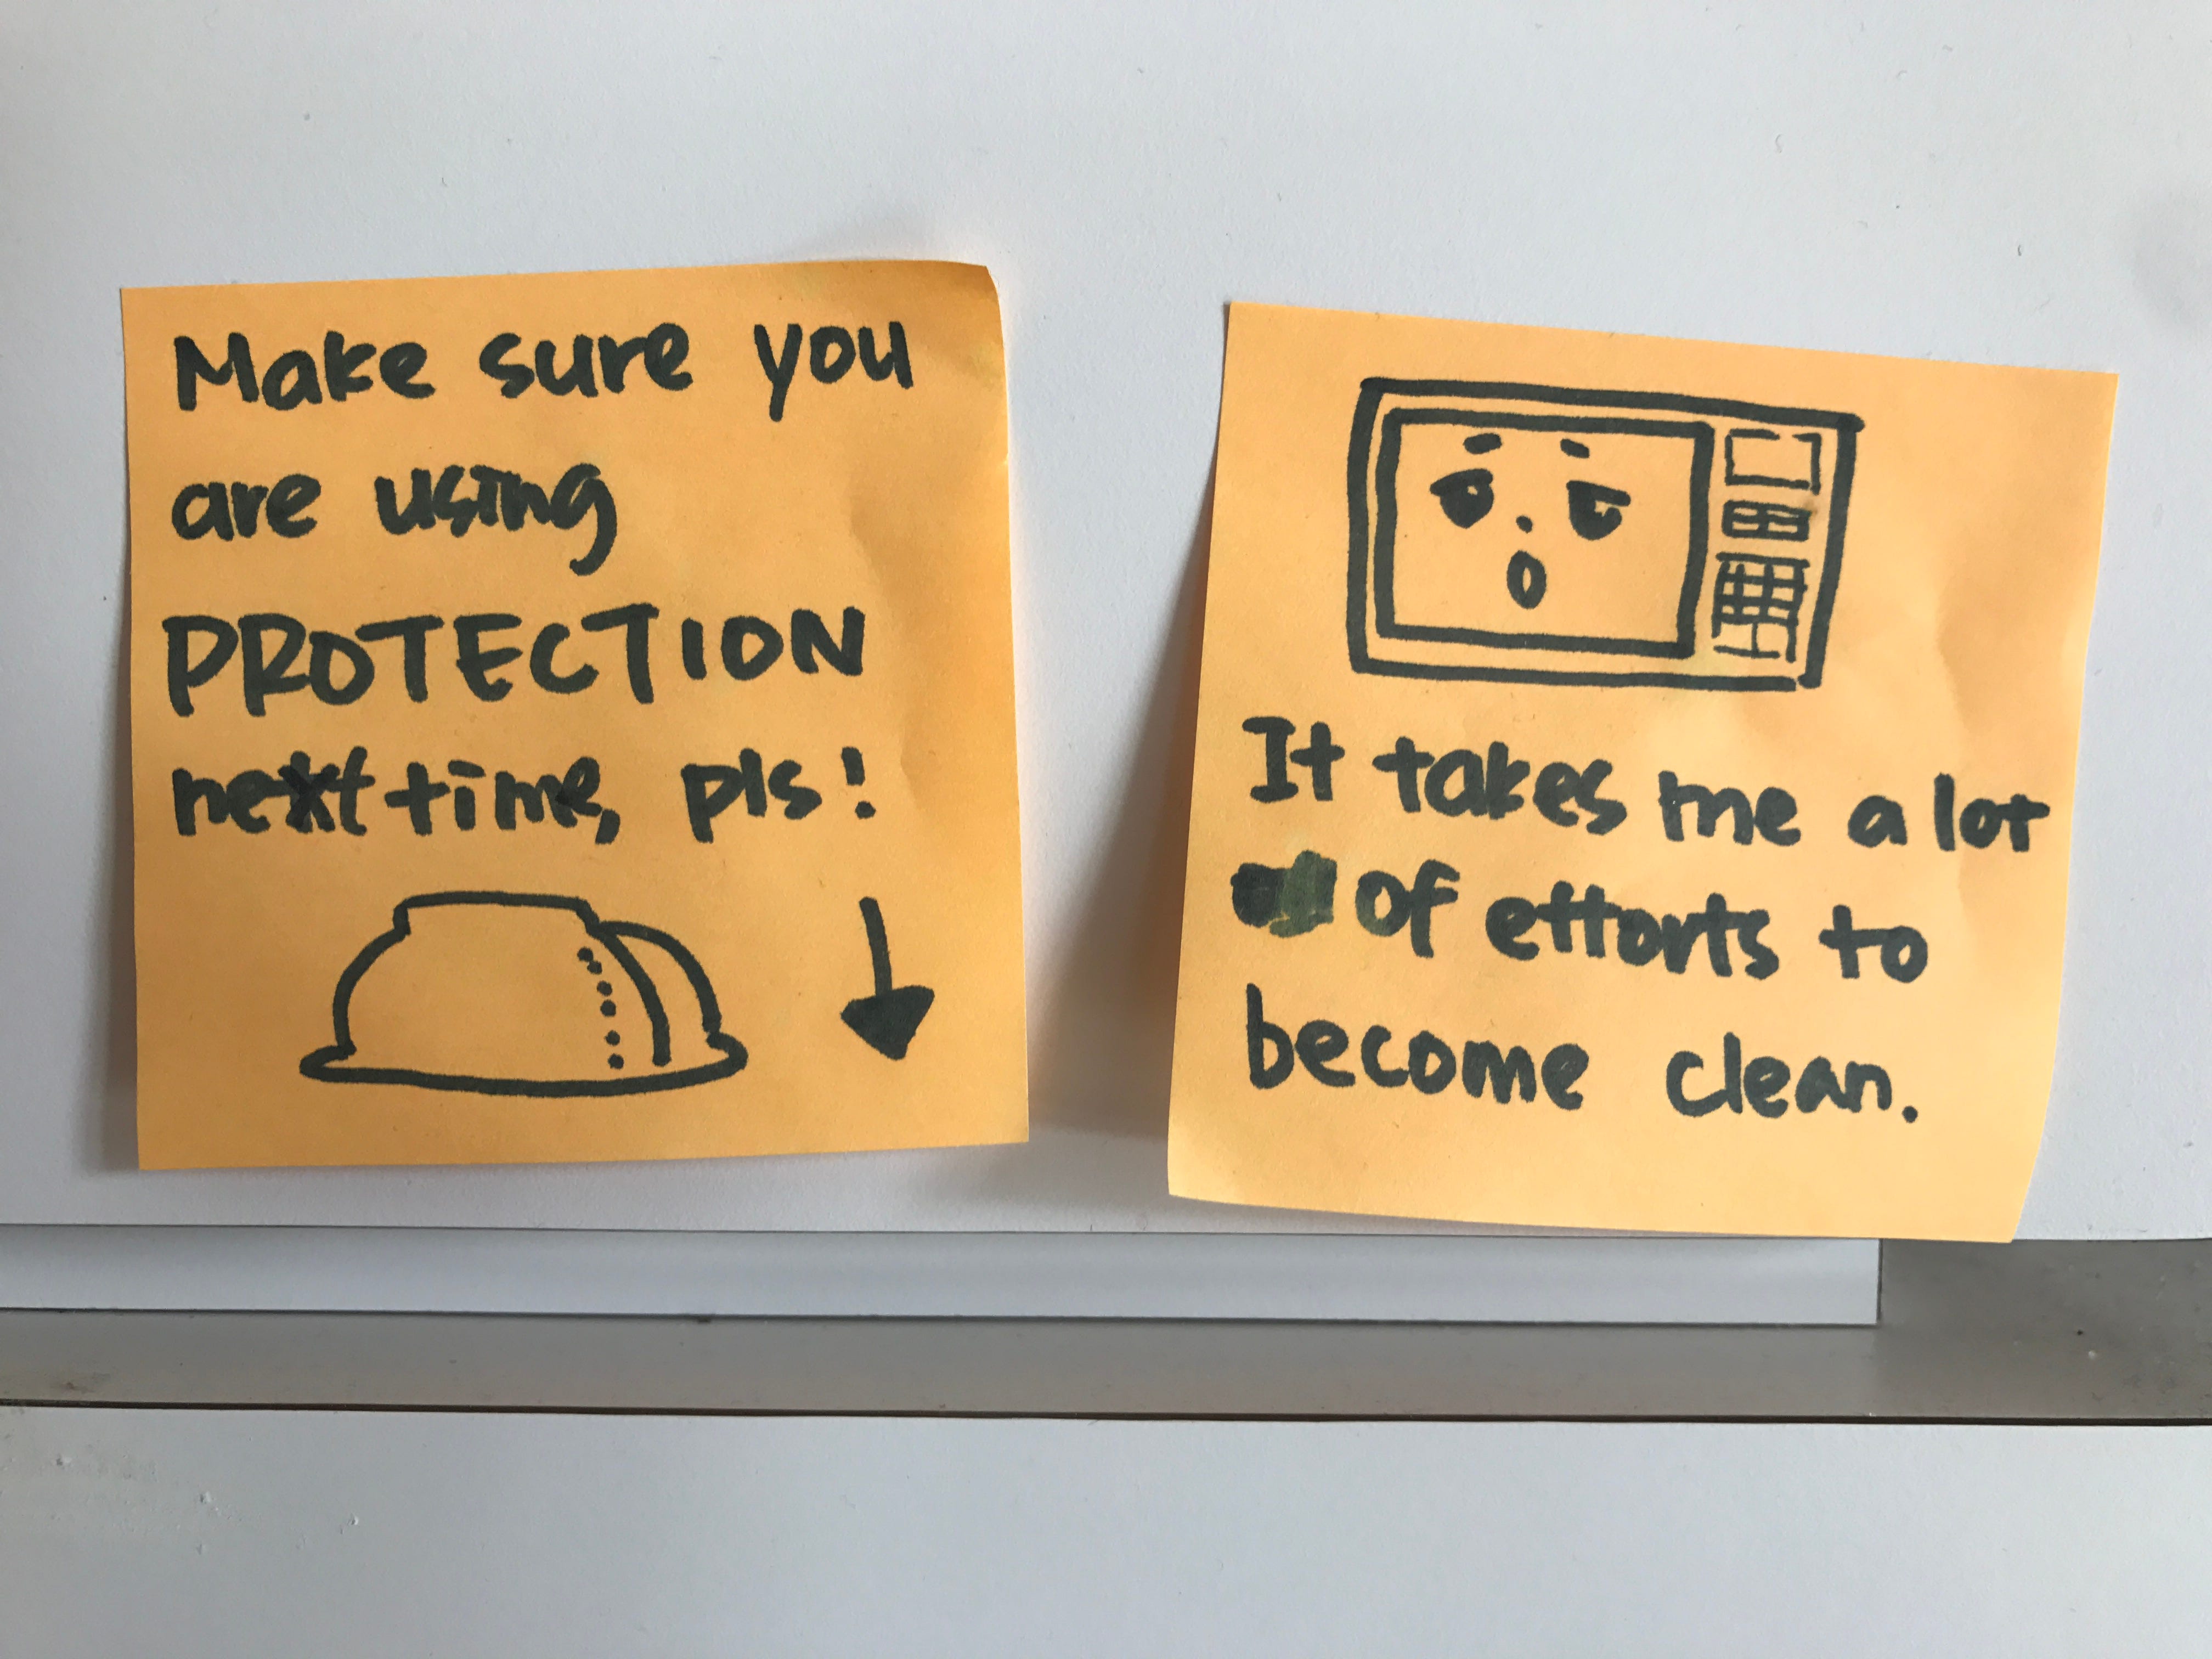 Make sure you
are using
PROTECTION
next time, pls!
It takes me a lot
of efforts to
become clean.